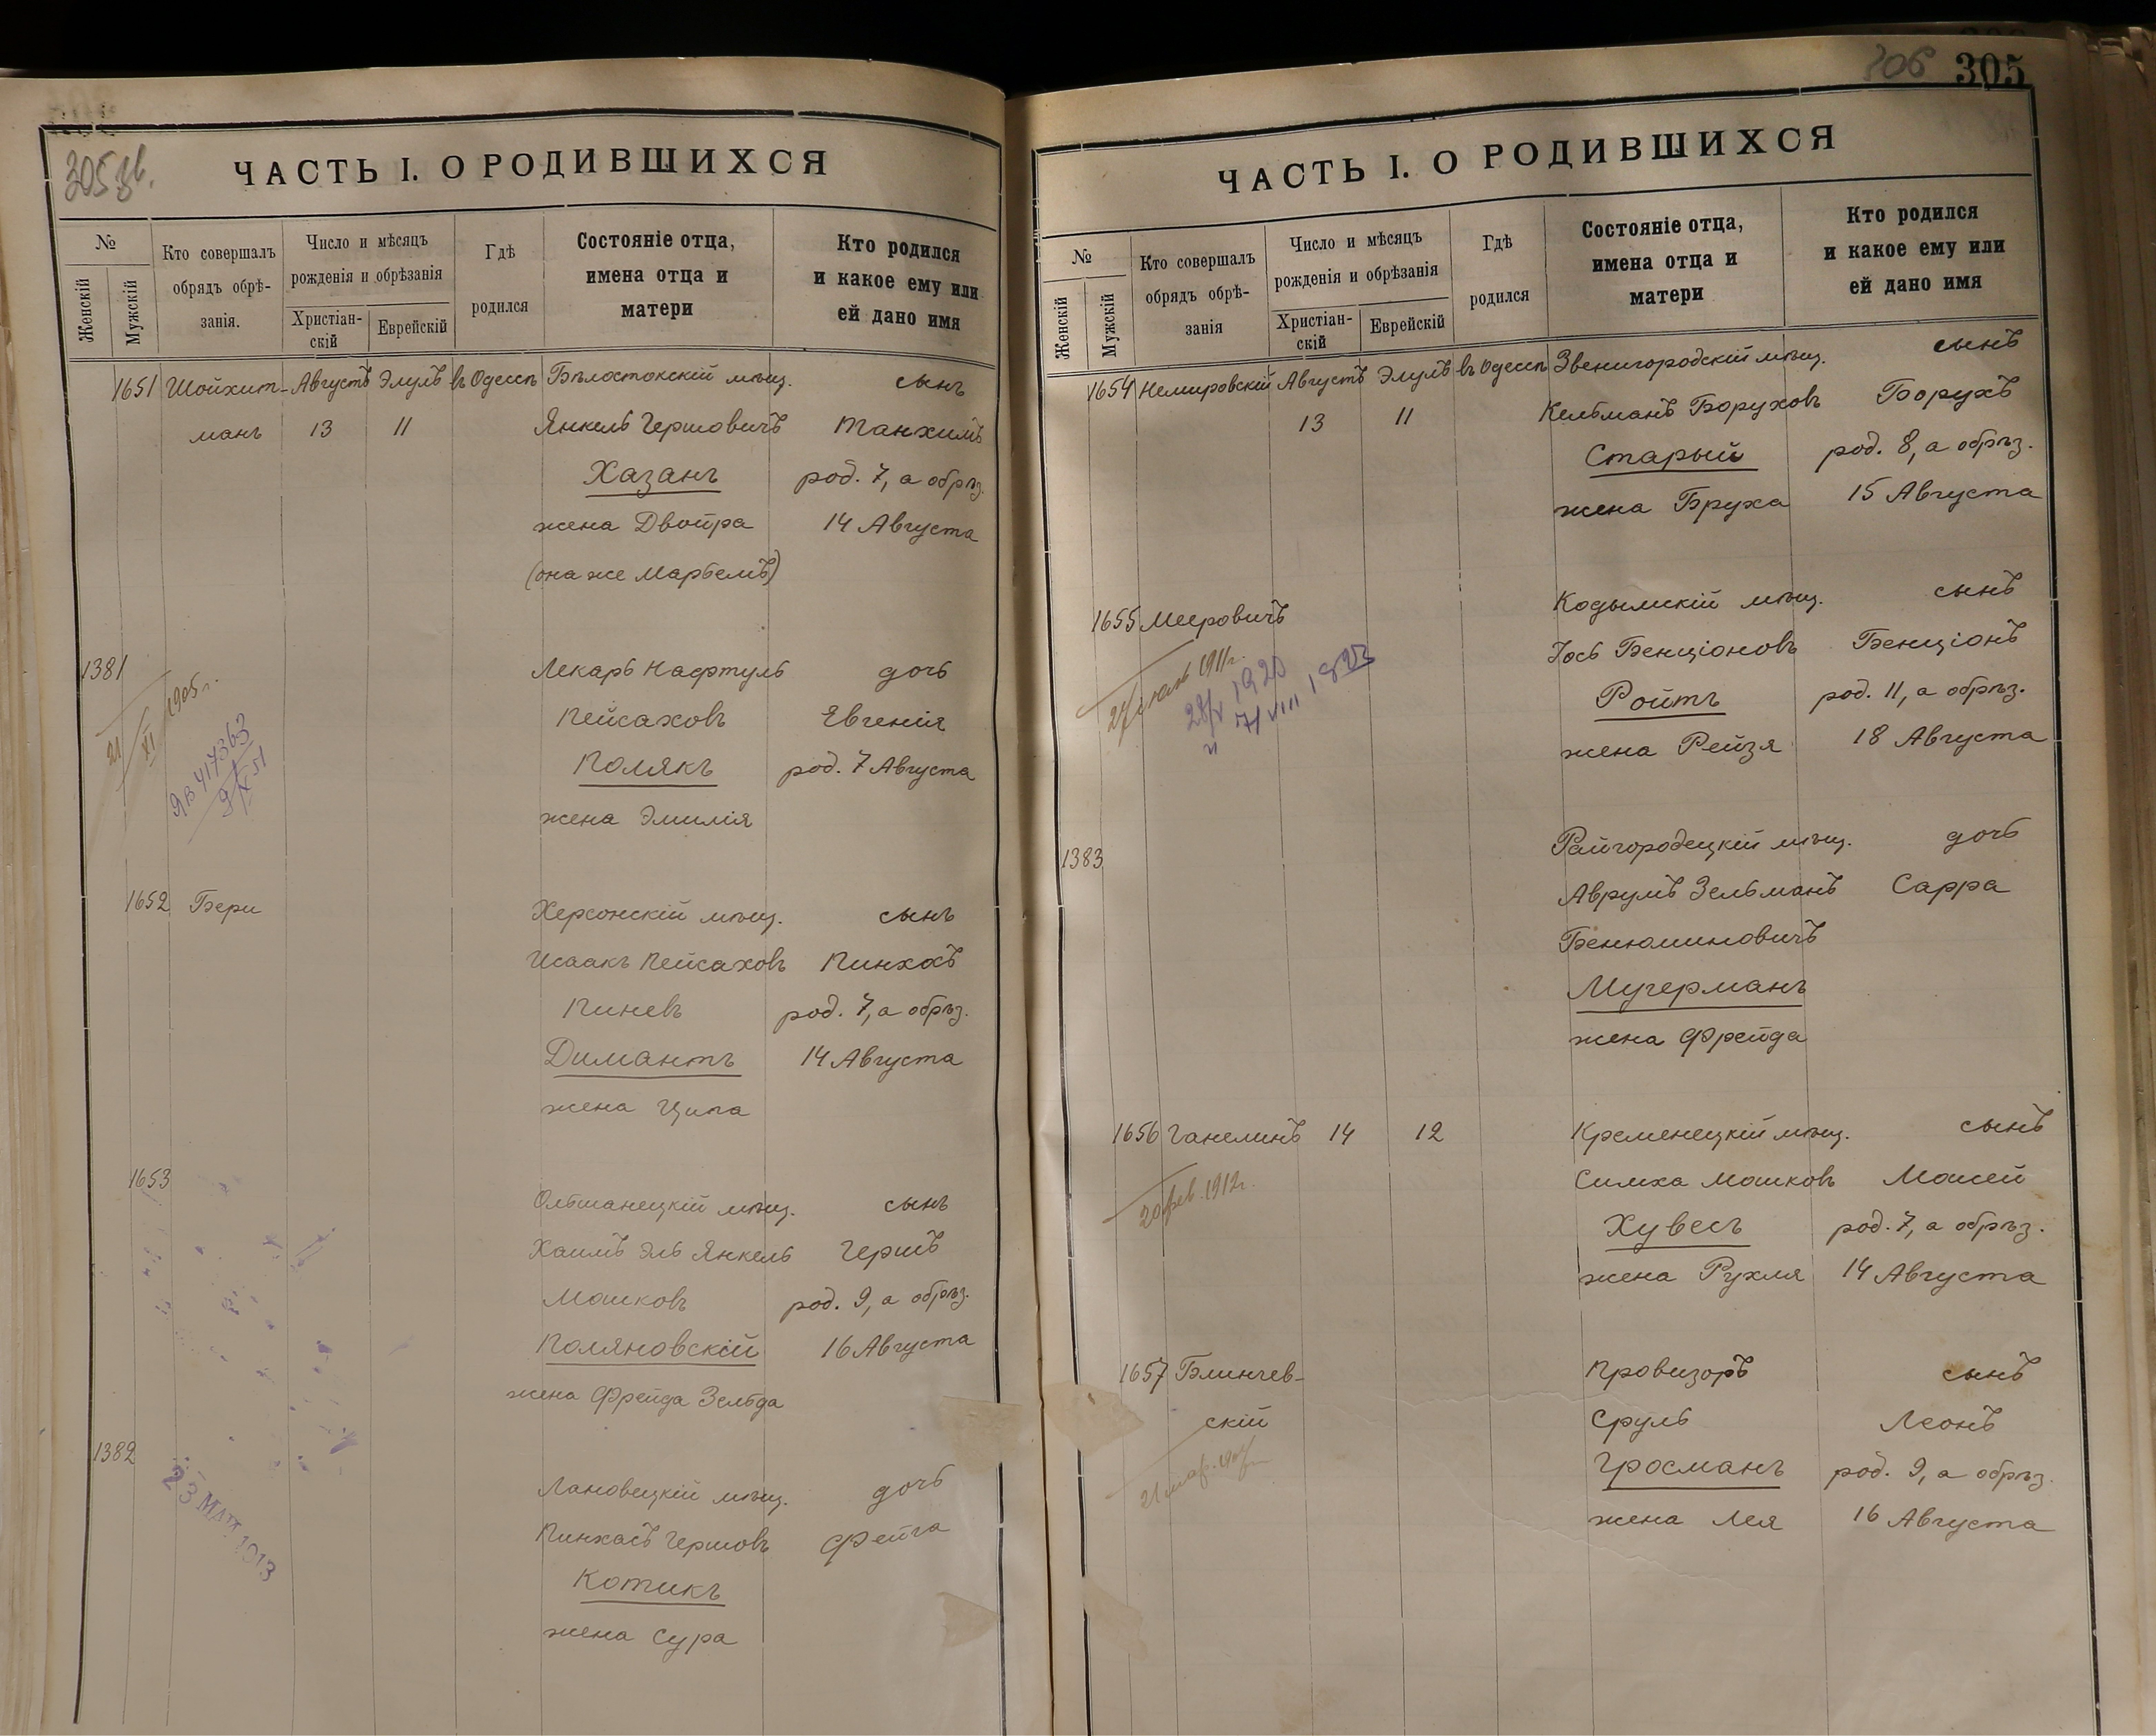 305 зв.
ЧАСТЬ I. О РОДИВШИХСЯ
№
Женскій
Мужскій
Кто совершалъ
обрядъ обрѣ-
занія.
Число и мѣсяцъ
рожденія и обрѣзанія
Христіан-
скій
Еврейскій
Гдѣ
родился
Состояніе отца,
имена отца и
матери
Кто родился
и какое ему или
ей дано имя
1651 Шойхит- Августъ Элулъ въ Одессѣ Бѣлостокскій мѣщ. сынъ
манъ 13 11 Янкель Гершовичъ Танхимъ
Хазанъ род. 7, а обрѣз.
жена Двойра 14 Августа
(она же Марьемъ)
1381 Лекарь Нафтуль дочь
Пейсаховъ Евгенія
Полякъ род. 7 Августа
жена Эмилія
21/XI 1905 г.
ЯВ 417363
1652 Бери Херсонскій мѣщ. сынъ
Исаакъ Пейсаховъ Пинхосъ
Пиневъ род. 7, а обрѣз.
Димантъ 14 Августа
жена Ципа
1653 Ольшанецкій мѣщ. сынъ
Хаимъ Эль Янкель Гершъ
Мошковъ род. 9, а обрѣз.
Поляновскій 16 Августа
жена Фрейда Зельда
1382 Лановецкій мѣщ. дочь
Пинхасъ Гершовъ Фейга
Котикъ
жена Сура
23 МАЯ 1913
306 305
ЧАСТЬ I. О РОДИВШИХСЯ
№
Женскій
Мужскій
Кто совершалъ
обрядъ обрѣ-
занія
Число и мѣсяцъ
рожденія и обрѣзанія
Христіан-
скій
Еврейскій
Гдѣ
родился
Состояніе отца,
имена отца и
матери
Кто родился
и какое ему или
ей дано имя
1654 Немировскій Августъ Элулъ въ Одессѣ Звенигородскій мѣщ. сынъ
13 11 Кельманъ Боруховъ Борухъ
Старый род. 8, а обрѣз.
жена Бруха 15 Августа
1655 Мееровичъ Кодымскій мѣщ. сынъ
Іось Бенціоновъ Бенціонъ
Ройтъ род. 11, а обрѣз.
жена Рейзя 18 Августа
1911 г.
28/V 1920
и 7/VIII 1923
1383 Райгородецкій мѣщ. дочь
Аврумъ Зельманъ Сарра
Бенюминовичъ
Мучерманъ
жена Фрейда
1656 Ганелинъ 14 12 Кременецкій мѣщ. сынъ
Симха Мошковъ Моисей
Хувесъ род. 7, а обрѣз.
жена Рухля 14 Августа
20 фев. 1912 г.
1657 Блинчев- Провизоръ сынъ
скій Сруль Леонъ
Гросманъ род. 9, а обрѣз.
жена Лея 16 Августа
21 мар.